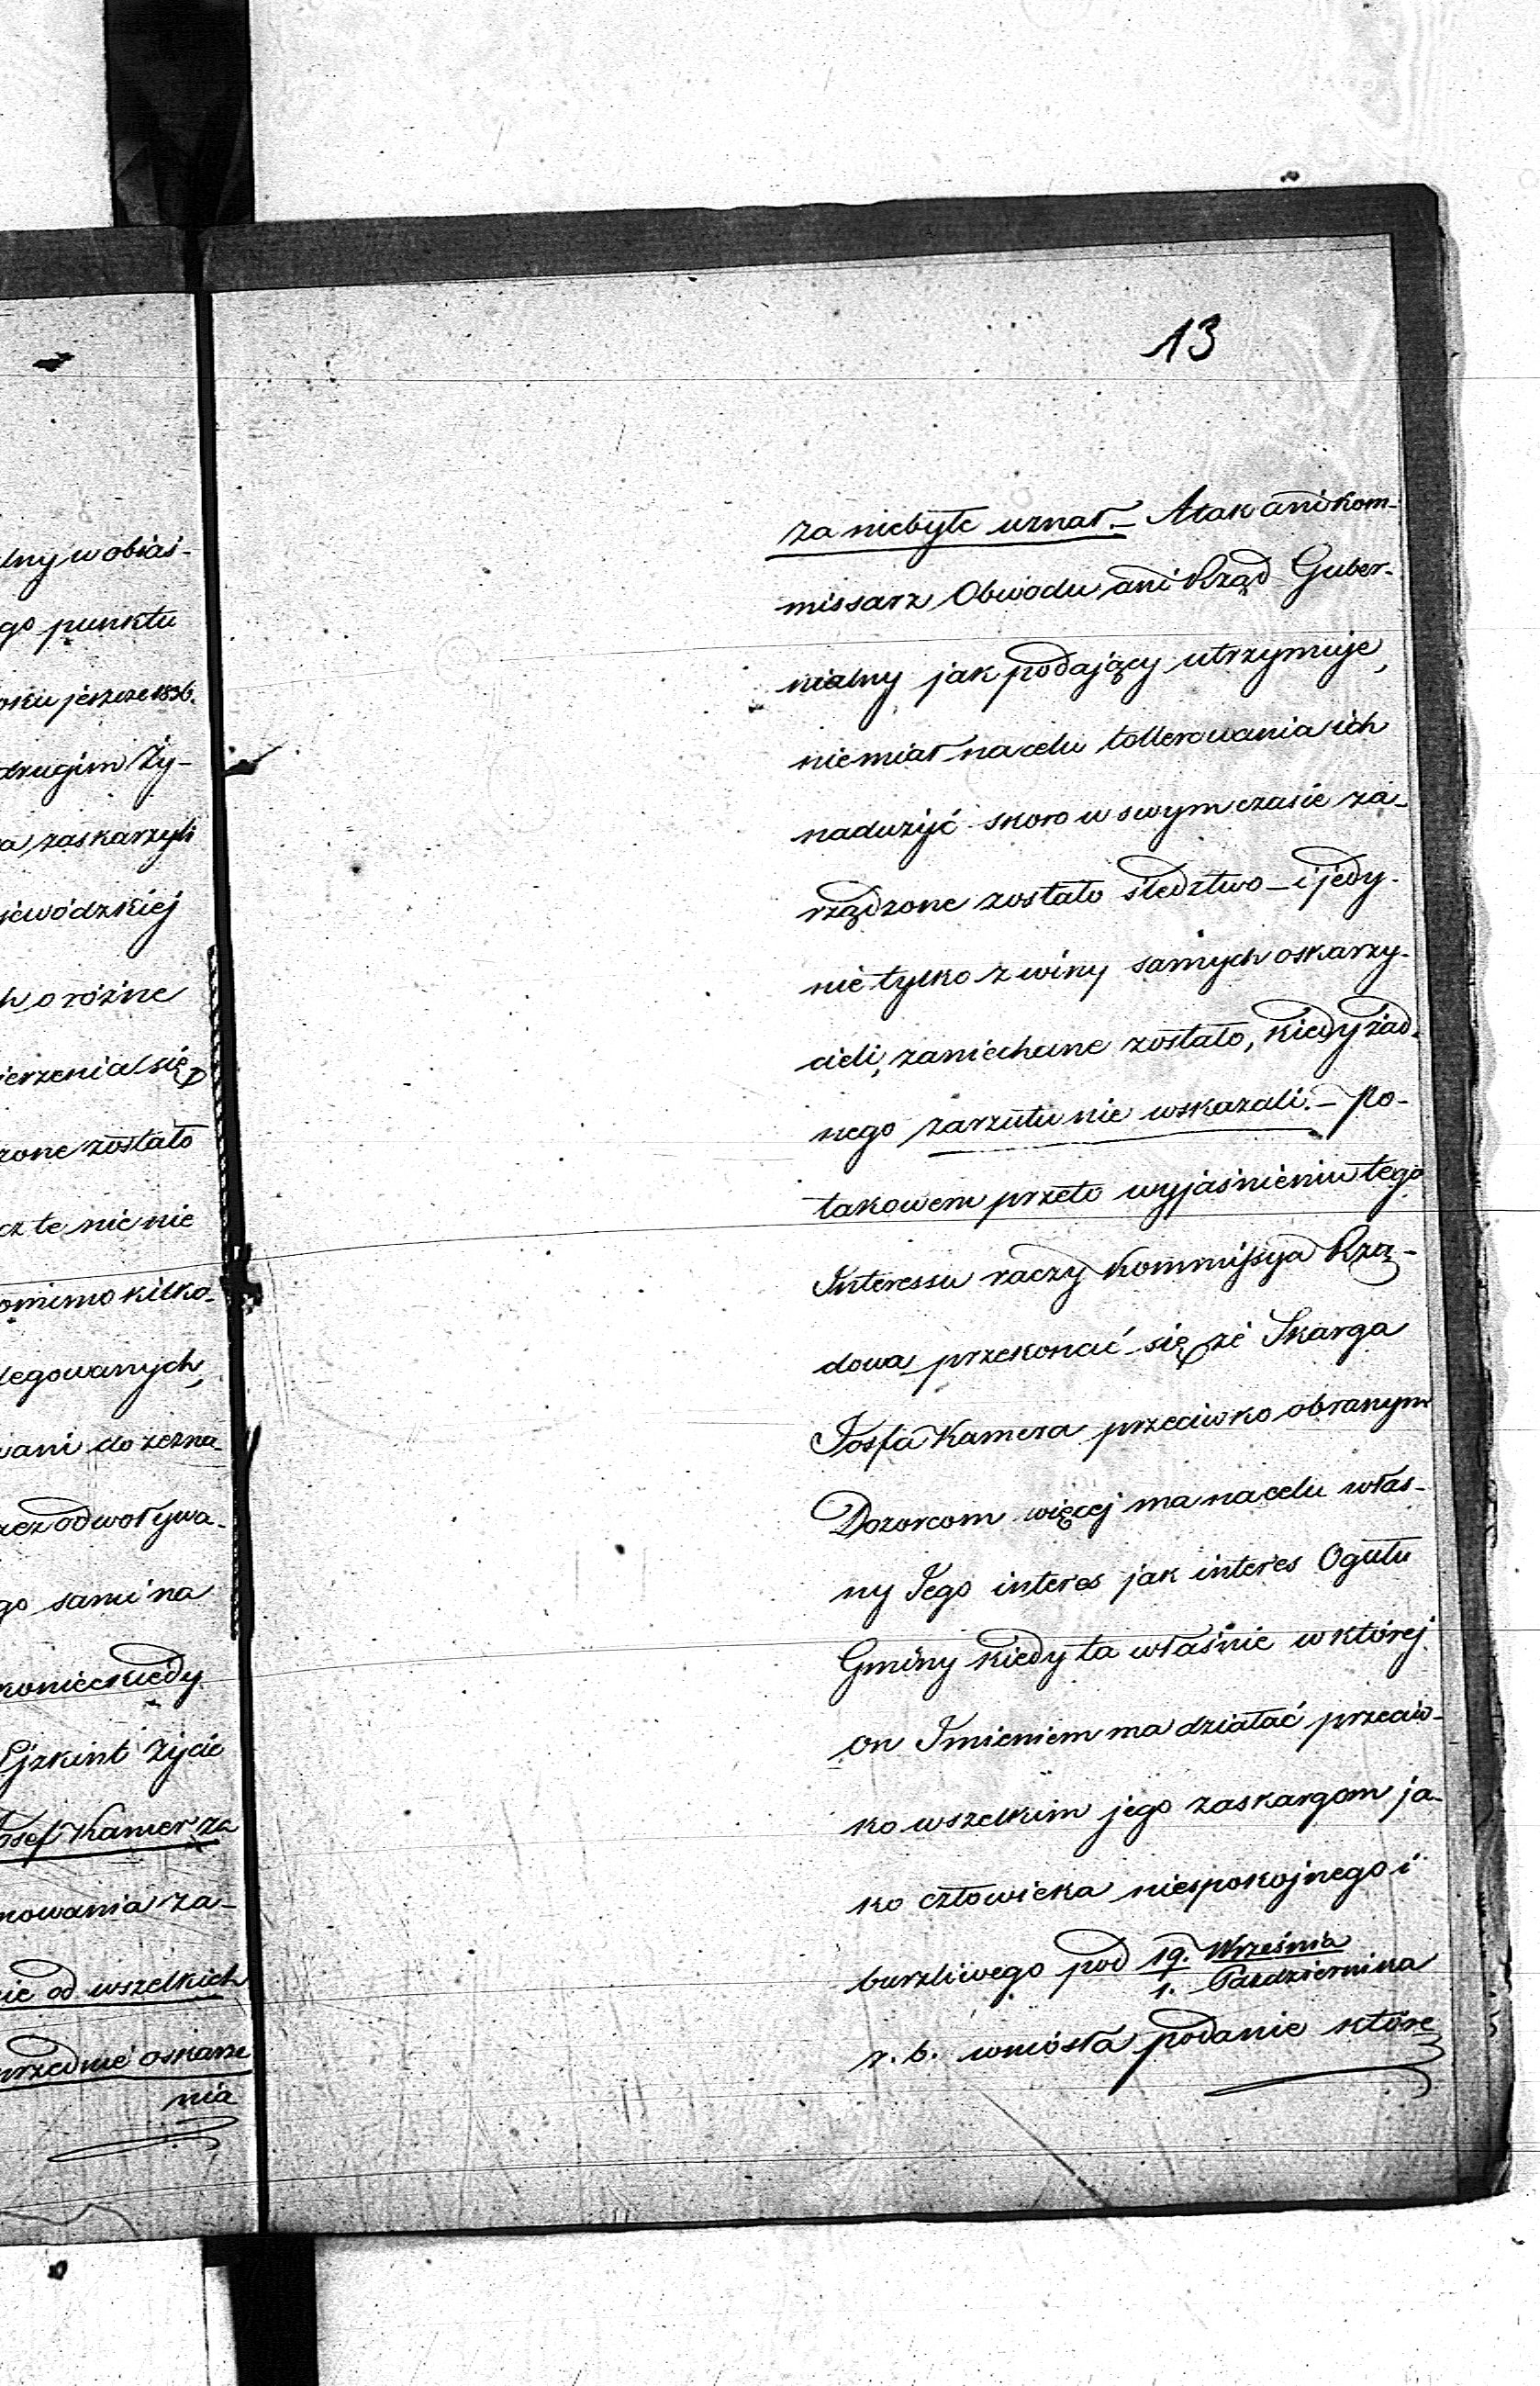 lny w obiaś-
go punktu
oku jeszcze 1836.
drugim Ży-
a zaskarzyli
jewódzkiej
h o różne
ierzenia się
zone zostało
cz te nic nie
omimo kilko-
legowanych,
wani do zezna-
zez odwoływa-
go sami na
koniec kiedy
Ejzkint życie
Josef Kamer za
nowania za-
nie od wszelkich
przednie oskarze
nia
13
za niebyłe uznał. – A tak ani Kom-
missarz Obwodu ani Rząd Guber-
nialny jak podający utrzymuje,
nie miał na celu tollerowania ich
nadużyć skoro w swym czasie za-
rządzone zostało śledztwo – i jedy-
nie tylko z winy samych oskarzy-
cieli, zaniechane zostało, kiedy żad-
nego zarzutu nie wskazali. – Po-
takowem przeto wyjaśnieniu tego
Interessu raczy Kommissya Rzą-
dowa przekonać się że Skarga
Josfa Kamera przeciwko obranym
Dozorcom więcej ma na celu włas-
ny Jego interes jak interes Ogułu
Gminy kiedy ta właśnie w której
on Imieniem ma działać przeciw-
ko wszelkim jego zaskargom ja-
ko człowieka niespokojnego i
burzliwego pod 19. Września
1. Października
r. b. wniosła podanie które